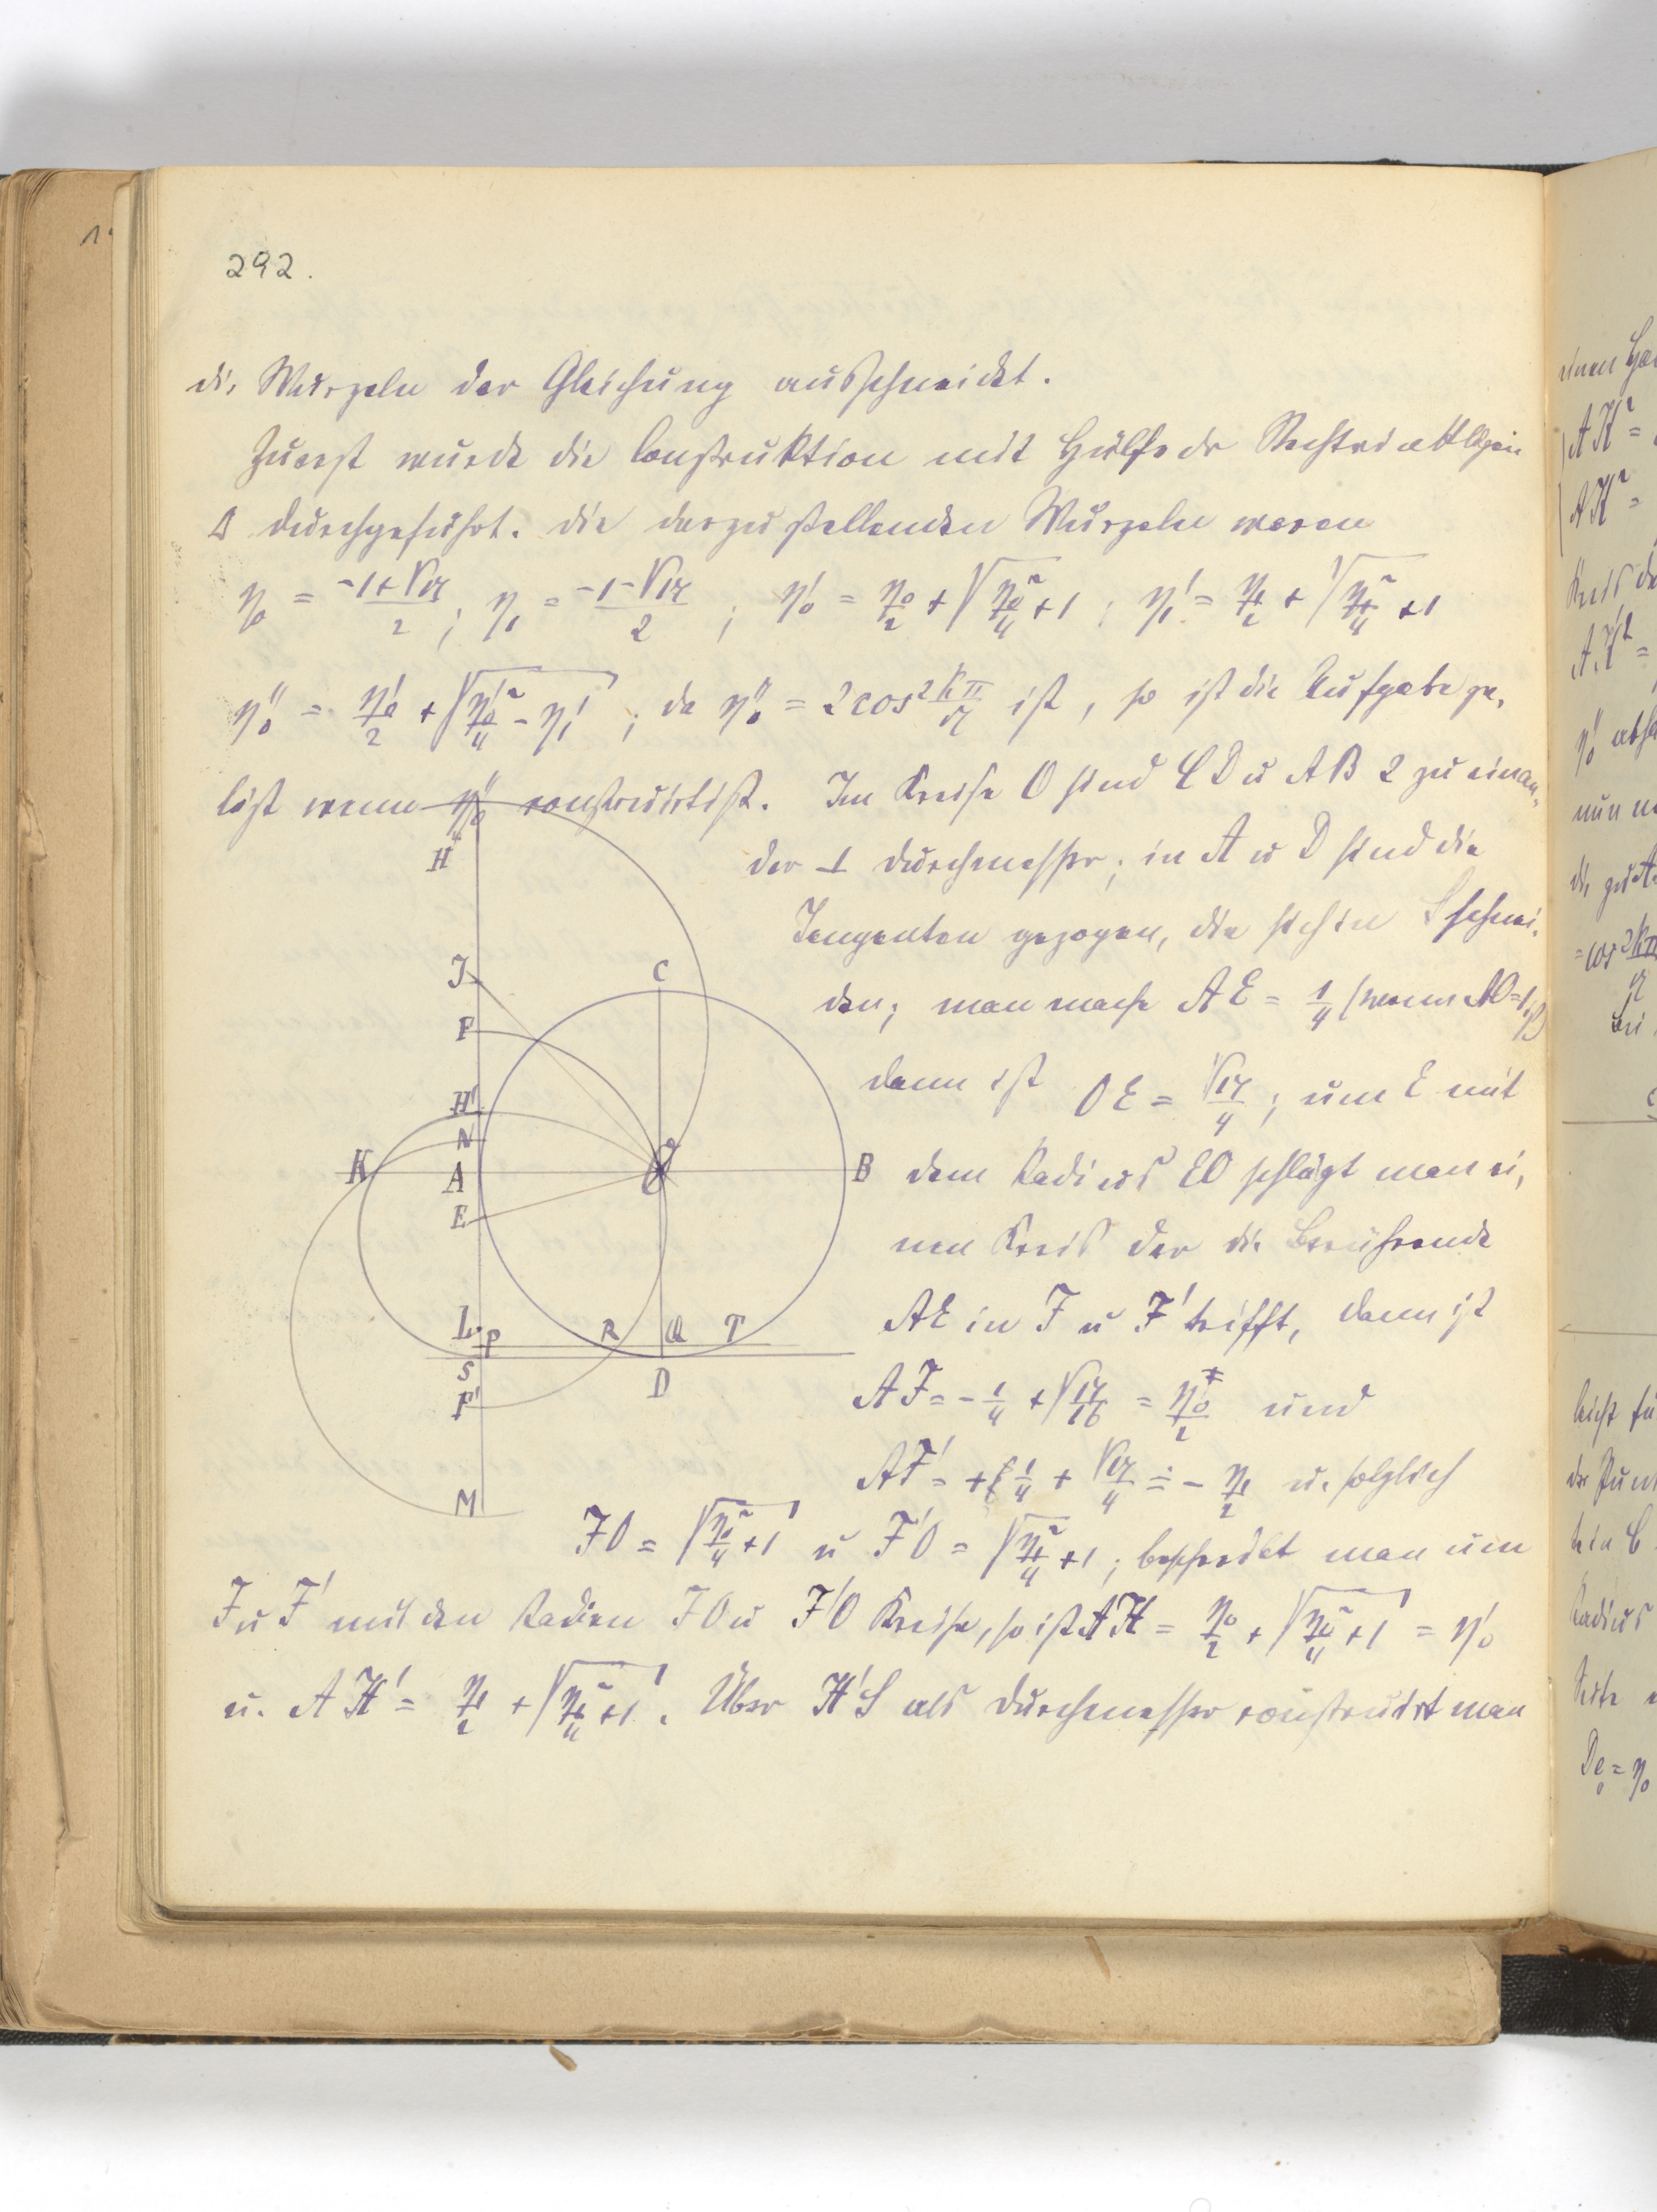 292.
die Wurzeln der Gleichung ausschneidet.
Zuerst wurde die Construktion mit Hülfe dr
durchgeführt. die darzustellenden Wurzeln waren
η₀ = (-1+√17)/2 ; η₁ = (-1-√17)/2 ; η₀' = η₀/2 + √(η₀²/4 + 1) ; η₁' = η₁/2 + √(η₁²/4 + 1)
η₀'' = η₀'/2 + √(η₀'²/4 - η₁') ; da η₀'' = 2cos 2kπ/17 ist, so ist die Aufgabe ge-
löst wenn η₀'' construirt ist. Im Kreise O sind CD u AB 2 zu einan-
der ⊥ Durchmesser; in A u D sind die
Tangenten gezogen, die sich in S schnei-
den; man mache AE = 1/4 (wenn AO=1 ist)
dann ist OE = √17/4 ; um E mit
dem Radius EO schlägt man ei-
nen Kreis der die Berührende
AE in F u F' trifft, dann ist
AF = -1/4 + √(17/16) = η₀/2 und
AF' = + 1/4 + √17/4 = - η₁/2 u. folglich
FO = √(η₀²/4 + 1) u F'O = √(η₁²/4 + 1) ; beschreibt man um
F u F' mit den Radien FO u F'O Kreise, so ist AH = η₀/2 + √(η₀²/4 + 1) = η₀'
u. AH' = η₁/2 + √(η₁²/4 + 1). Über H'S als Durchmesser construirt man
H
J
C
F
H'
N
K
A
O
B
E
L
P
R
Q
T
S
D
F'
M